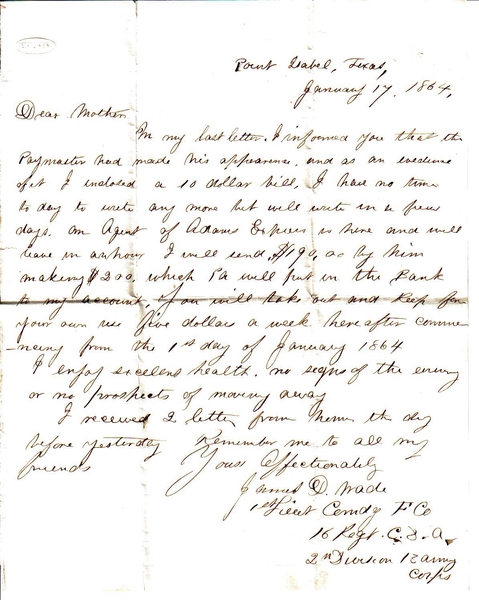 Point Isabel, Texas,
January 17, 1864,
Dear Mother
In my last letter. I informed you that the
Paymaster had made his appearence, and as an evidence
of it I inclosed a 10 dollar bill, I have no time
to day to write any more but will write in a few
days. An Agent of Adams Express is here and will
leave in an hour I will send $190,00 by him
making $200, which Pa will put in the Bank
to my account, You will take out and keep for
your own use five dollars a week hereafter comme-
-ncing from the 1st day of January 1864
I enjoy excellent health, no signs of the enemy
or no prospects of moving away
I received 2 letter from home the day
before yesterday Remember me to all my
friends Yours Affectionately
James D. Wade
1st Lieut Comdg F Co
16 Regt. C. D. A.
2nd Division 13 army
Corps